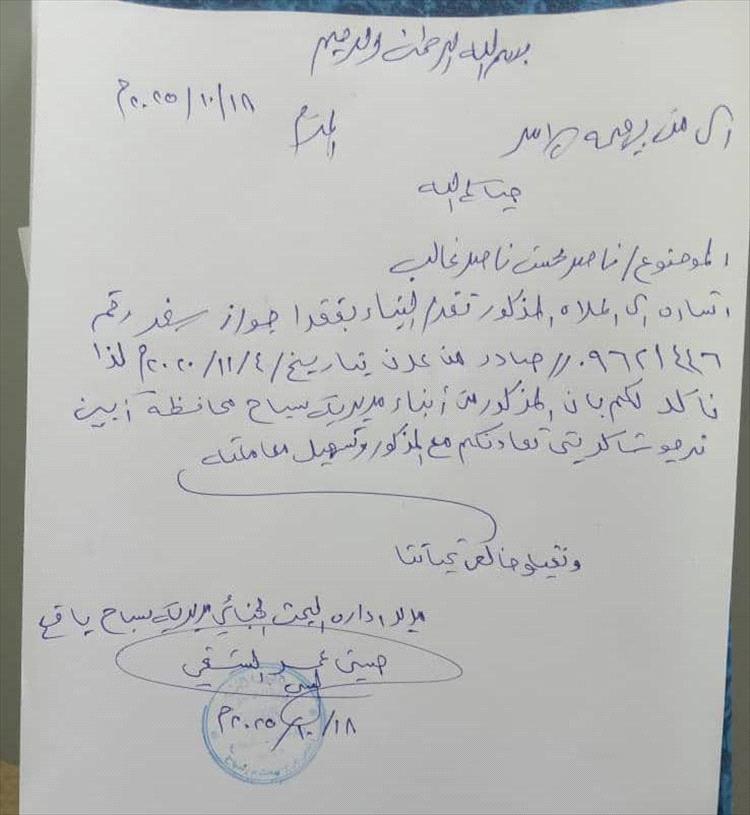 بسم الله الرحمن الرحيم
٢٠٢٥/١٠/١٨م
الى من يهمه الامر المحترم
حياكم الله
الموضوع/ ناصر محسن ناصر غالب
اشاره الى اعلاه المذكور تقدم الينا بفقد جواز سفر رقم
٠٩٦٢١٤٤٦ // صادر من عدن بتاريخ/ ٢٠٢٠/١١/٤م لذا
نأكد لكم بان المذكور من أبناء مديرية سباح محافظة أبين
نرجو شاكرين تعاونكم مع المذكور وتسهيل معاملته
وتقبلو خالص تحياتنا
مدير اداره البحث الجنائي مديرية سباح يافع
٢٠٢٥/١٠/١٨م